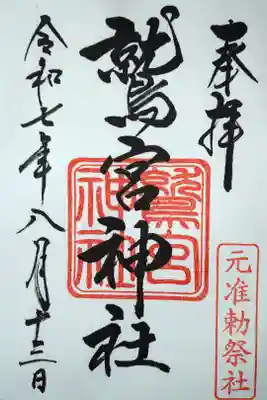 奉拝
元准勅祭社
鷲宮神社
鷲宮神社
令和七年八月十三日